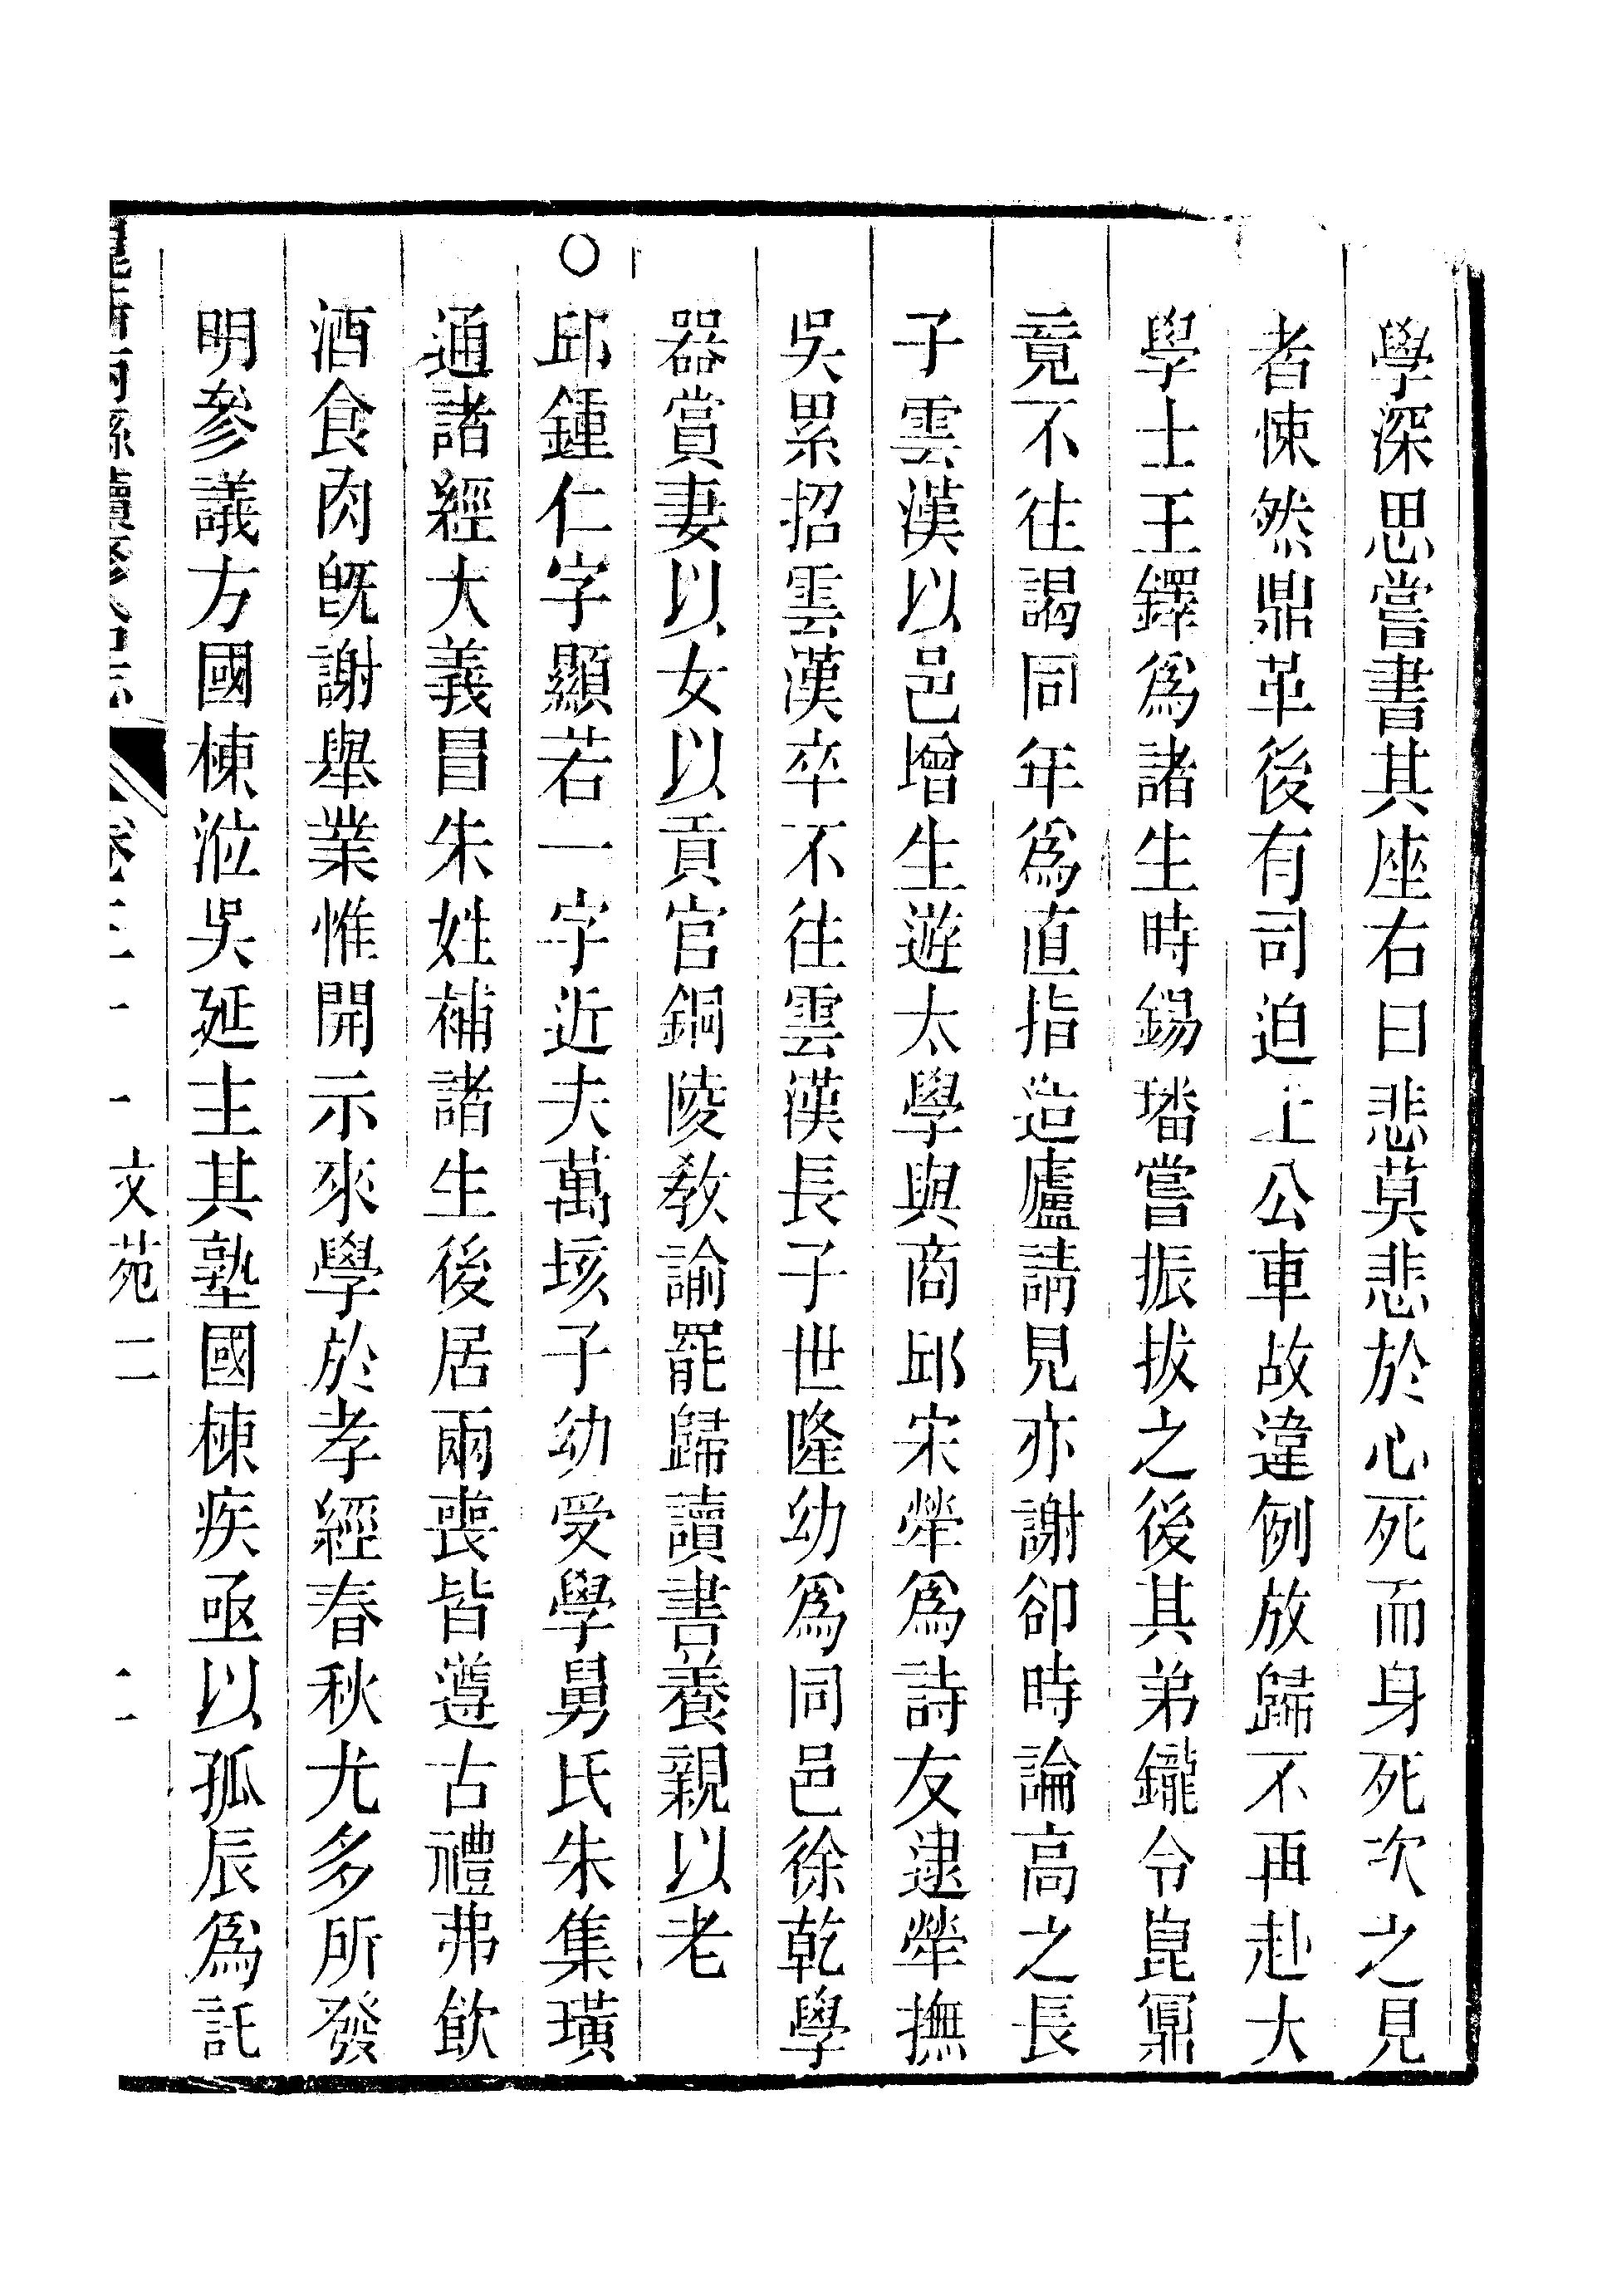 學深思嘗書其座右曰悲莫悲於心死而身死次之見
者悚然鼎革後有司迫上公車故違例放歸不再赴大
學士王鐸爲諸生時錫璠嘗振拔之後其弟鑨令崑鼏
竟不往謁同年爲直指造廬請見亦謝卻時論高之長
子雲漢以邑增生遊太學與商邱宋犖爲詩友逮犖撫
吳累招雲漢卒不往雲漢長子世隆幼爲同邑徐乾學
器賞妻以女以貢官銅陵敎諭罷歸讀書養親以老
○邱鍾仁字顯若一字近夫萬垓子幼受學舅氏朱集璜
通諸經大義冒朱姓補諸生後居兩喪皆遵古禮弗飮
酒食肉旣謝舉業惟開示來學於孝經春秋尤多所發
明參議方國棟涖吳延主其塾國棟疾亟以孤辰爲託
兩縣續修合志 卷三十一 文苑二 二